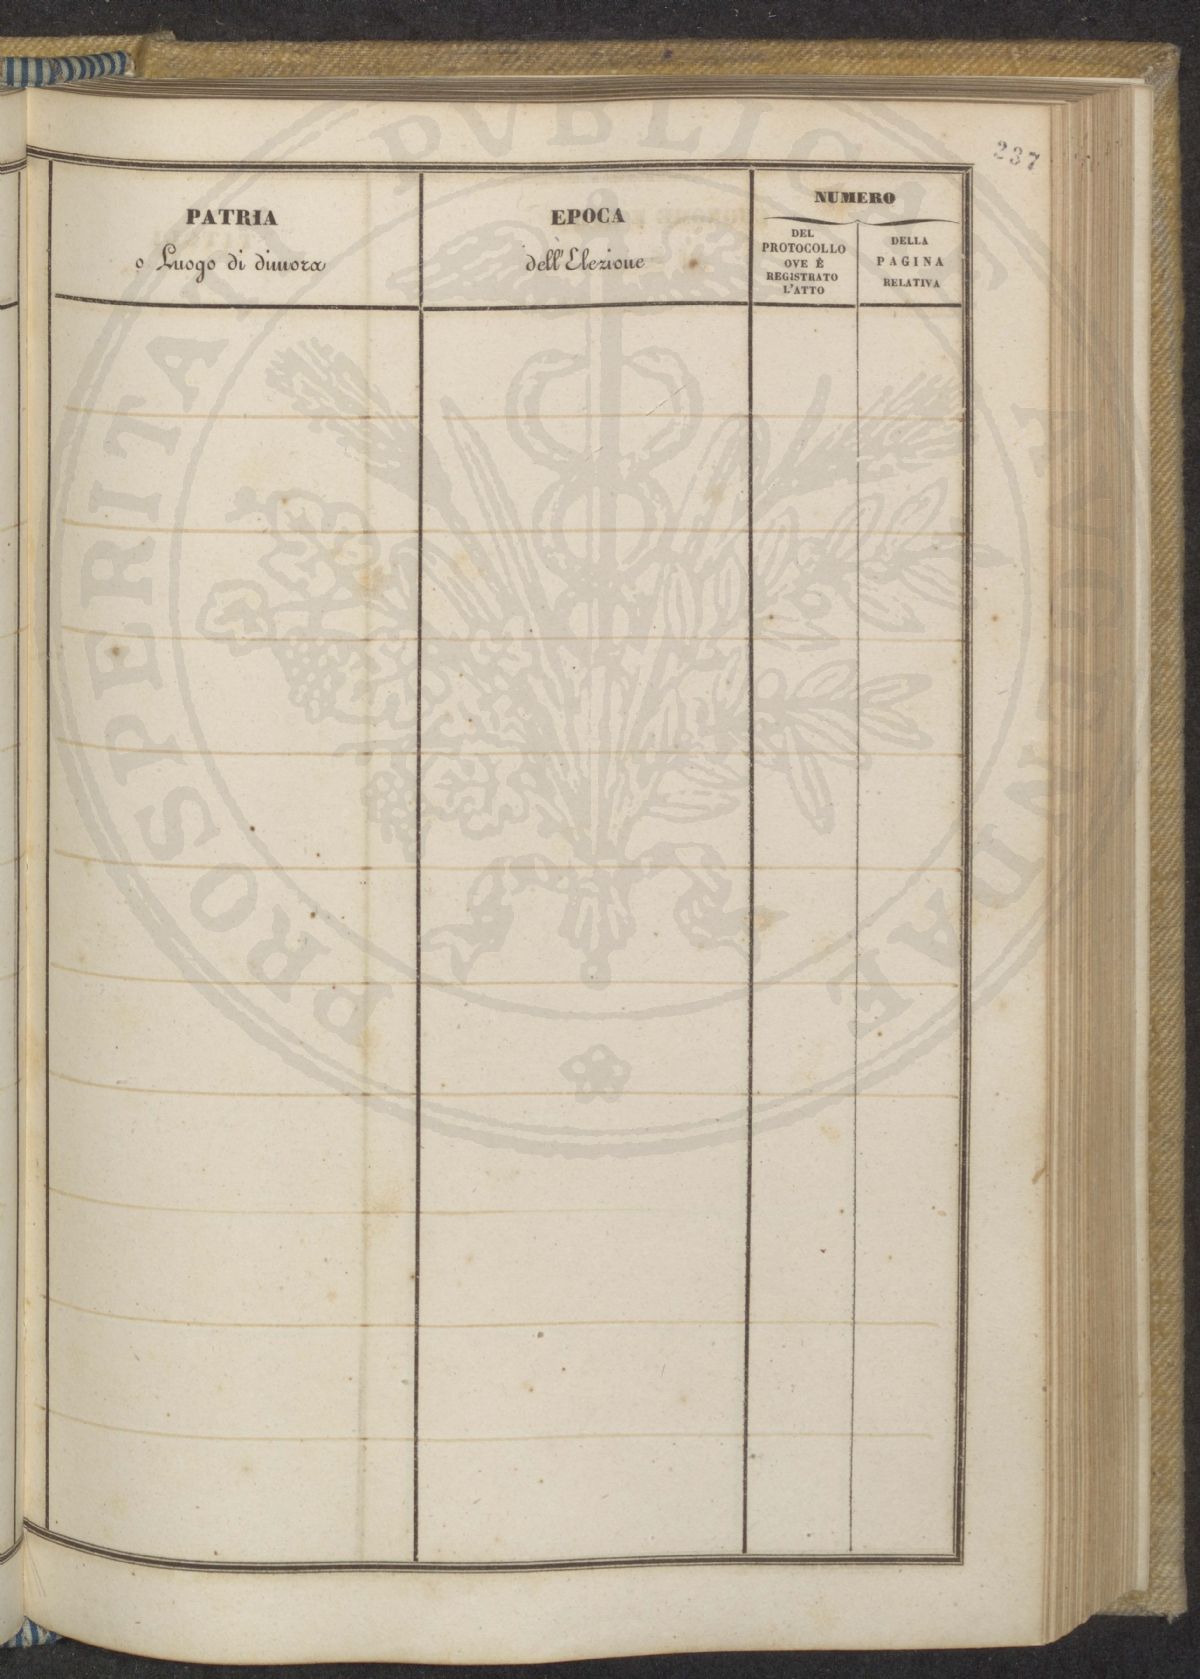 237
PATRIA
o Luogo di dimora
EPOCA
dell'Elezione
NUMERO
DEL
PROTOCOLLO
OVE È
REGISTRATO
L'ATTO
DELLA
PAGINA
RELATIVA
PROSPERITATI PVBLICAE AVGENDAE